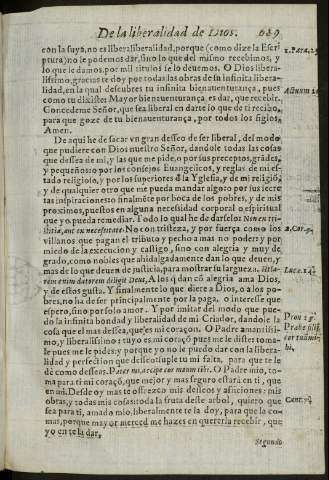 De la liberalidad de Dios. 689
con la suya, no es liberaliberalidad, porque (como dize la Escri
ptura) no le podemos dar, sino lo que del mismo recebimos, y
lo que le damos, por mil titulos se lo deuemos. O Dios libera-
lissimo, gracias te doy por todas las obras de su infinita libera-
lidad, en la qual descubres tu infinita bienauenturança, pues
como tu dixiste: Mayor bienauenturança, es dar, que recebir.
Concedeme Señor, que sea liberal en darte lo que de ti recibo,
para que goze de tu bienauenturança, por todos los siglos,
Amen.
De aqui he de sacar vn gran desseo de ser liberal, del modo
que pudiere con Dios nuestro Señor, dandole todas las cosas
que dessea de mi, y las que me pide, o por sus preceptos, grãdes,
y pequeños, o por los consejos Euangelicos, y reglas de mi es-
tado religioso, y por los superiores d la Yglesia, y de mi religiõ,
y de qualquier otro que me pueda mandar algo, o por sus secre
tas inspiraciones, o finalmẽte por boca de los pobres, y de mis
proximos, puestos en alguna necesidad corporal o espiritual
que yo pueda remediar. Todo lo qual he de darselo: Non ex tri
stitia, aut ex necessitate. No con tristeza, y por fuerça como los
villanos que pagan el tributo y pecho a mas no poder y por
miedo de la execucion y castigo, sino con alegria y muy de
grado, como nobles que ahidalgadamente dan lo que deuen, y
mas de lo que deuen de justicia, para mostrar su largueza. Hila-
rem enim datorem diligit Deus, A los q̃ dan cõ alegria ama Dios,
y de estos gusta. Y finalmente lo que diere a Dios, o a los po-
bres, no ha de ser principalmente por la paga, o interesse que
espero, sino por solo amor. Y por imitar del modo que pue-
do la infinita bondad y liberalidad de mi Criador, dandole la
cosa que el mas dessea, que es mi coraçon. O Padre amantissi-
mo, y liberalissimo: tuyo es mi coraçõ pues me le diste: toma-
le pues me le pides: y porque yo no le puedo dar con la libera-
lidad y perfeccion que desseo: suple tu mi falta, para que te le
dè como desseas. Pater mi, accipe cor meum tibi. O Padre mio, to-
ma para ti mi coraçõ, que mejor y mas seguro estará en ti, que
en mi. Desde oy mas te ofrezco mis desseos y aficiones: mis
obras, y todas mis cosas: toda la fruta deste arbol, quiero que
sea para ti, amado mio, liberalmente te la doy, para que la co-
mas, porque mayor merced me hazes en quererla recebir, que
yo en tela dar.
Segundo